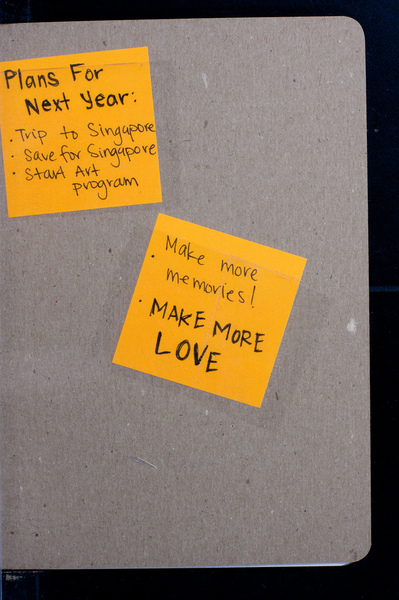 Plans For
Next Year:
· Trip to Singapore
· Save for Singapore
· Start Art
program
· Make more
memories!
· MAKE MORE
LOVE